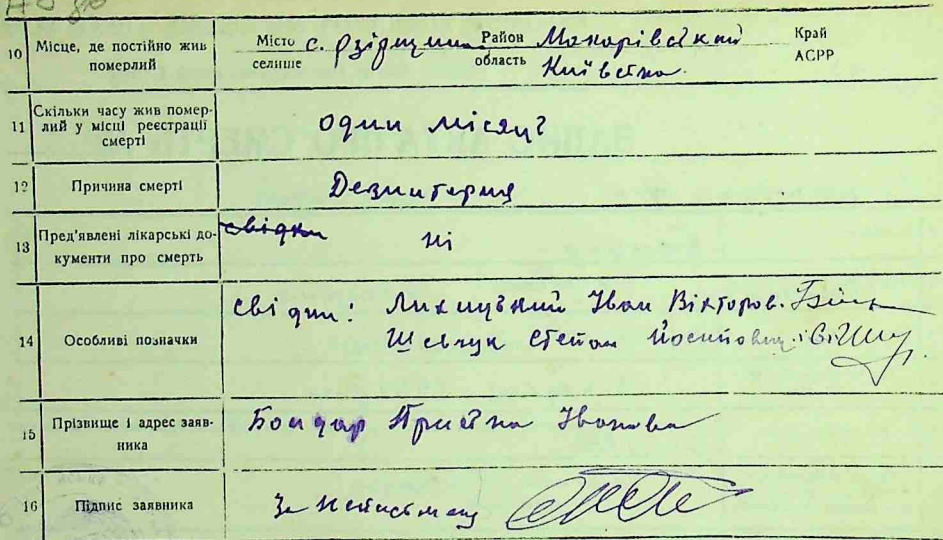 10 Місце, де постійно жив померлий
Місто селище с. Район область Макарівський Київська Край АСРР
11 Скільки часу жив помер-
лий у місці реєстрації
смерті
один місяць
12 Причина смерті
Дезинтерия
13 Пред'явлені лікарські до-
кументи про смерть
свідки ні
14 Особливі позначки
свідки: Иван Вікторов.
Шевчук Степан Йосипович і
15 Прізвище і адрес заяв-
ника
Бондар Иванова
16 Підпис заявника
За